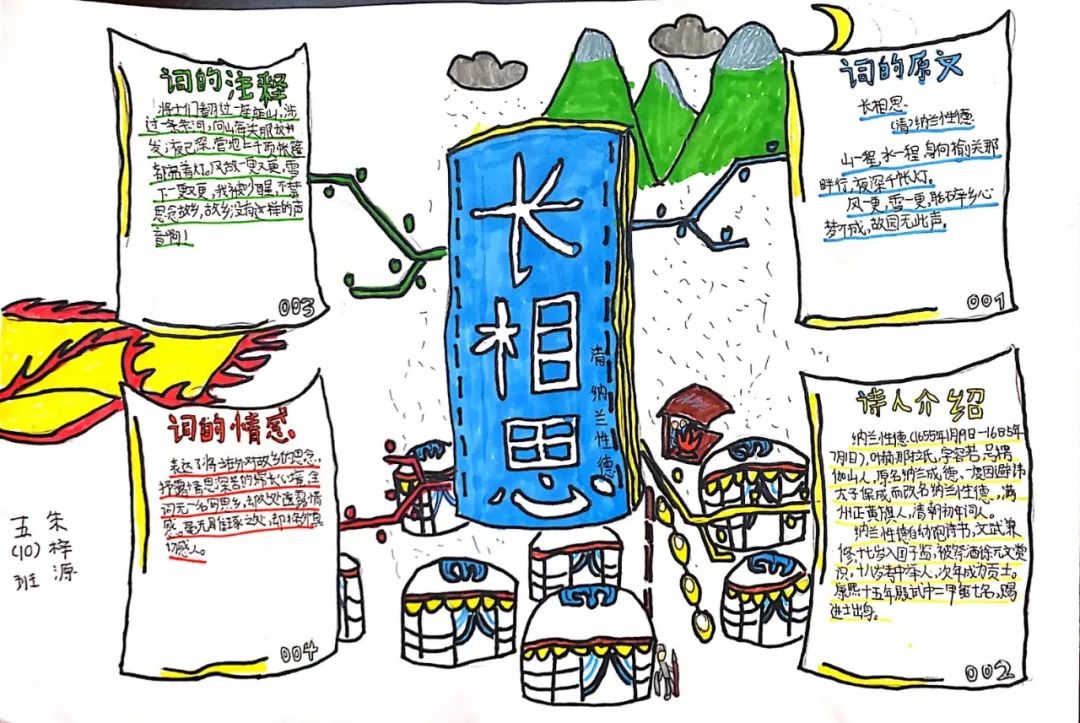 词的注释
将士们翻过一座座山,涉
过一条条河,向山海关那边进
发,夜已深,营地上千顶帐篷
都亮着灯。风 一更又更,雪
下一更又更,我被吵醒,不禁
思念故乡,故乡没有这样的声
音啊!
003
词的原文
长相思
(清)纳兰性德
山一程,水一程,身向榆关那
畔行,夜深千帐灯。
风一更,雪一更,聒碎乡心
梦不成,故园无此声。
001
长相思
清 纳兰性德
词的情感
表达了将士们对故乡的思念,
抒露情思深苦的绵长心境,全
词无一 写思乡,却处处透露情
感。毫无雕琢之处,却格外真
切感人。
004
诗人介绍
纳兰性德(1655年1月19日-1685年
7月1日),叶赫那拉氏,字容若,号楞
伽山人,原名纳兰成德,一度因避讳
太子保成而改名纳兰性德。满
州正黄旗人,清朝初年词人。
纳兰性德自幼饱读诗书,文武兼
修,十七岁入国子监,被祭酒徐元文赏
识,十八岁考中举人,次年成为贡士。
康熙十五年殿试中二甲第七名,赐
进士出身。
002
五(10)班
朱梓源